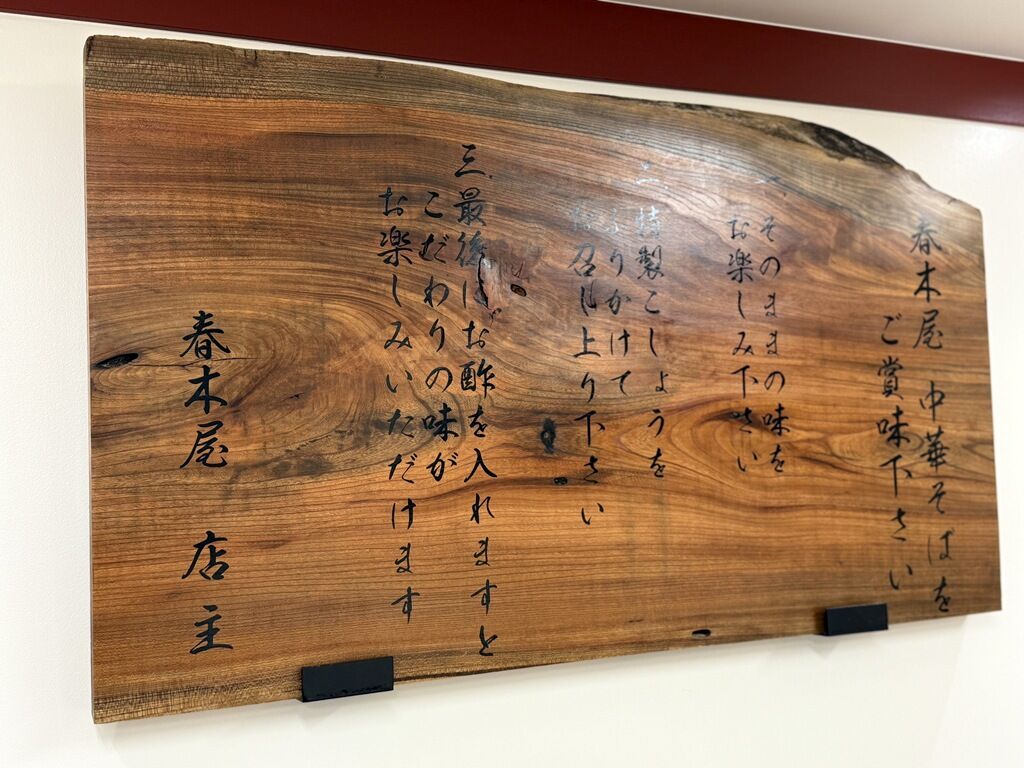 春木屋 中華そばを
ご賞味下さい
一、そのままの味を
お楽しみ下さい
二、特製こしょうを
ふりかけて
召し上り下さい
三、最後にお酢を入れますと
こだわりの味が
お楽しみいただけます
春木屋 店主